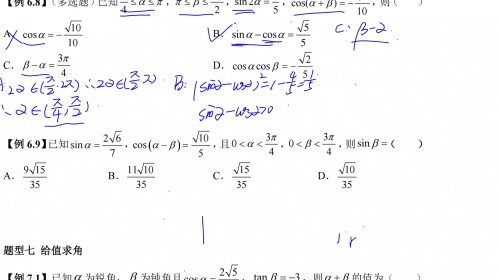 【例 6.8】(多选题) 已知 π/4 ≤ α ≤ π, π ≤ β ≤ 3π/2, sin2α = 4/5, cos(α + β) = -√2/10, 则 ( )
A. cosα = -√10/10 B. sinα - cosα = √5/5 C: β-α
C. β - α = 3π/4 D. cosα cosβ = -√2/5
∴2α∈(π/2, π) B: (sinα-cosα)²=1-4/5=1/5
∴α∈(π/4, π/2) sinα-cosα>0
【例 6.9】已知 sinα = 2√6/7, cos(α - β) = √10/5, 且 0 < α < 3π/4, 0 < β < 3π/4, 则 sinβ = ( )
A. 9√15/35 B. 11√10/35 C. √15/35 D. √10/35
题型七 给值求角
【例 7.1】已知 α 为锐角, β 为钝角且 cosα = 2√5, tanβ = -3, 则 α + β 的值为 (